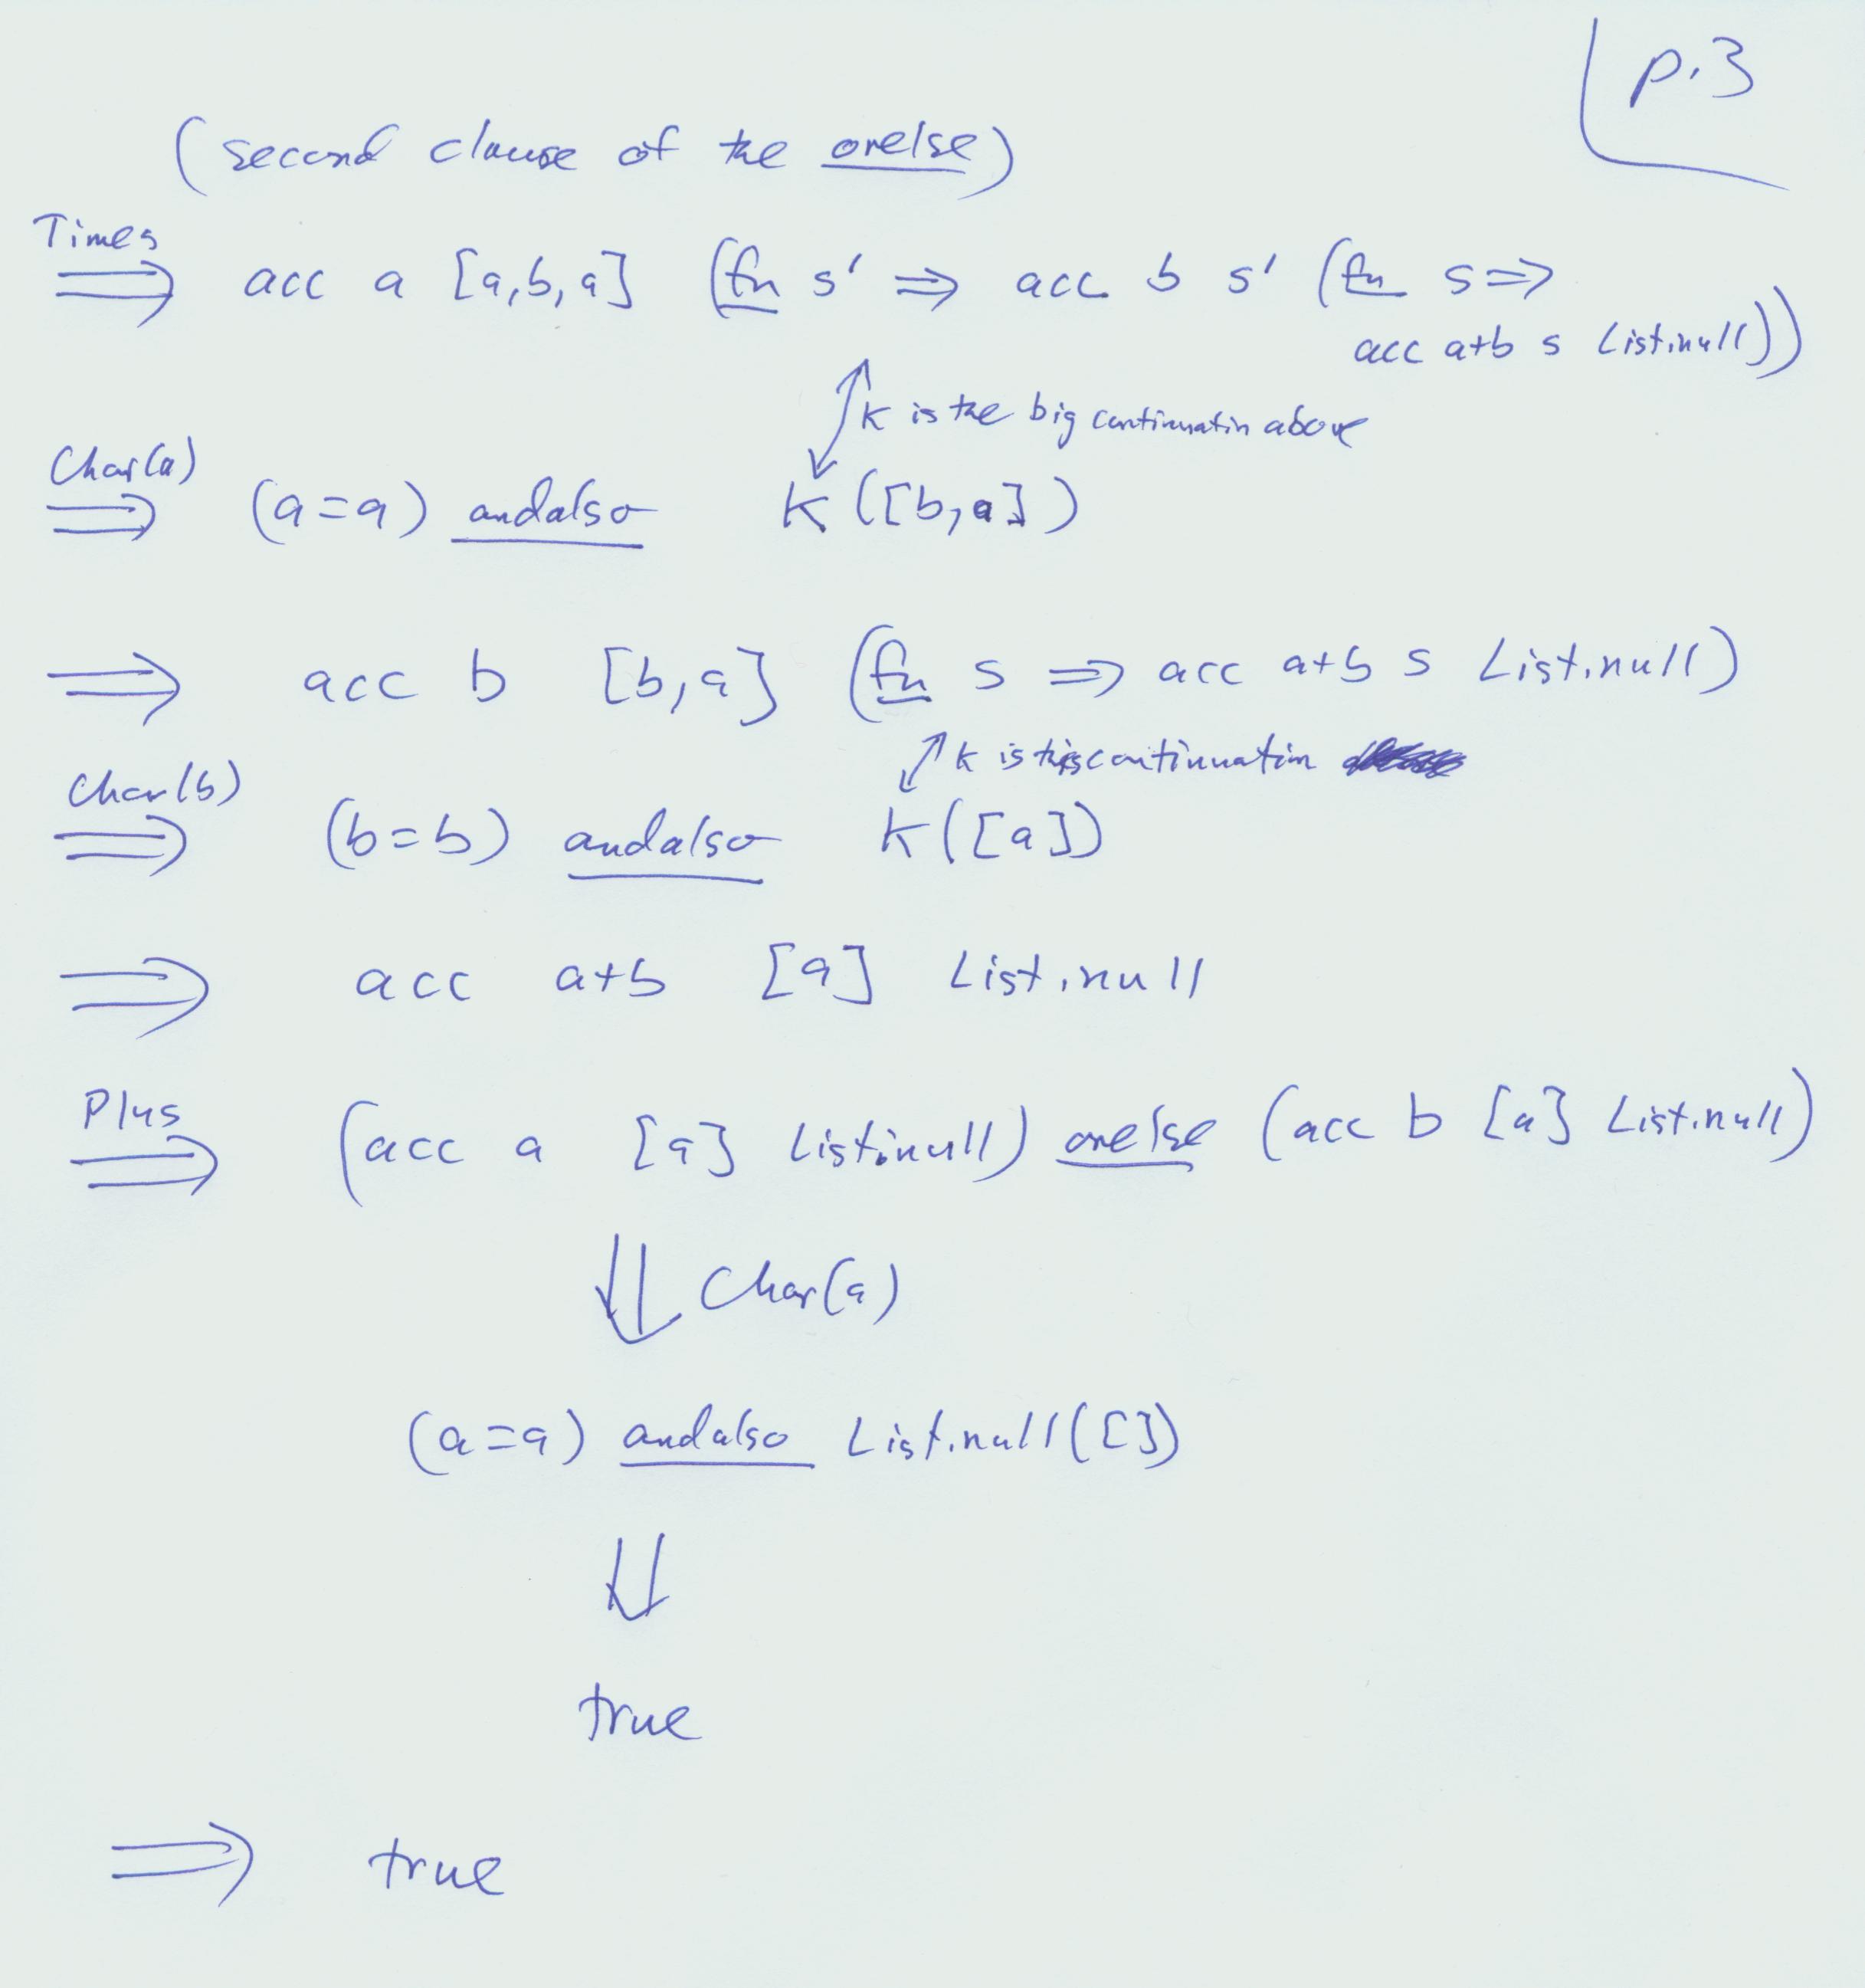 p.3
(second clause of the orelse)
Times
⟹ acc a [a,b,a] (fn s' ⟹ acc b s' (fn s ⟹
acc a+b s List.null))
K is the big continuatin above
Char(a)
⟹ (a=a) andalso K([b,a])
⟹ acc b [b,a] (fn s ⟹ acc a+b s List.null)
K is this continuatin
Char(b)
⟹ (b=b) andalso K([a])
⟹ acc a+b [a] List.null
Plus
⟹ (acc a [a] List.null) orelse (acc b [a] List.null)
⇓ Char(a)
(a=a) andalso List.null([])
⇓
true
⟹ true